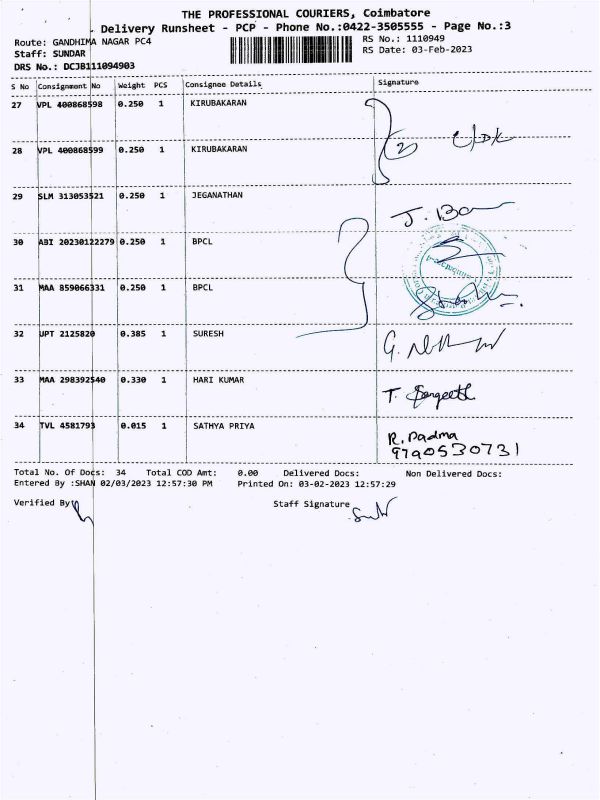 THE PROFESSIONAL COURIERS, Coimbatore
Delivery Runsheet - PCP - Phone No.:0422-3505555 - Page No.:3
Route: GANDHIMA NAGAR PC4
RS No.: 1110949
Staff: SUNDAR
RS Date: 03-Feb-2023
DRS No.: DCJB111094903
S No Consignment No Weight PCS Consignee Details Signature
27 VPL 400868598 0.250 1 KIRUBAKARAN
28 VPL 400868599 0.250 1 KIRUBAKARAN
2
29 SLM 313053521 0.250 1 JEGANATHAN
30 ABI 20230122279 0.250 1 BPCL
31 MAA 859066331 0.250 1 BPCL
32 UPT 2125820 0.385 1 SURESH
33 MAA 298392540 0.330 1 HARI KUMAR
T. Sangeeth
34 TVL 4581793 0.015 1 SATHYA PRIYA
R. Padma
9790530731
Total No. Of Docs: 34 Total COD Amt: 0.00 Delivered Docs: Non Delivered Docs:
Entered By :SHAN 02/03/2023 12:57:30 PM Printed On: 03-02-2023 12:57:29
Verified By
Staff Signature